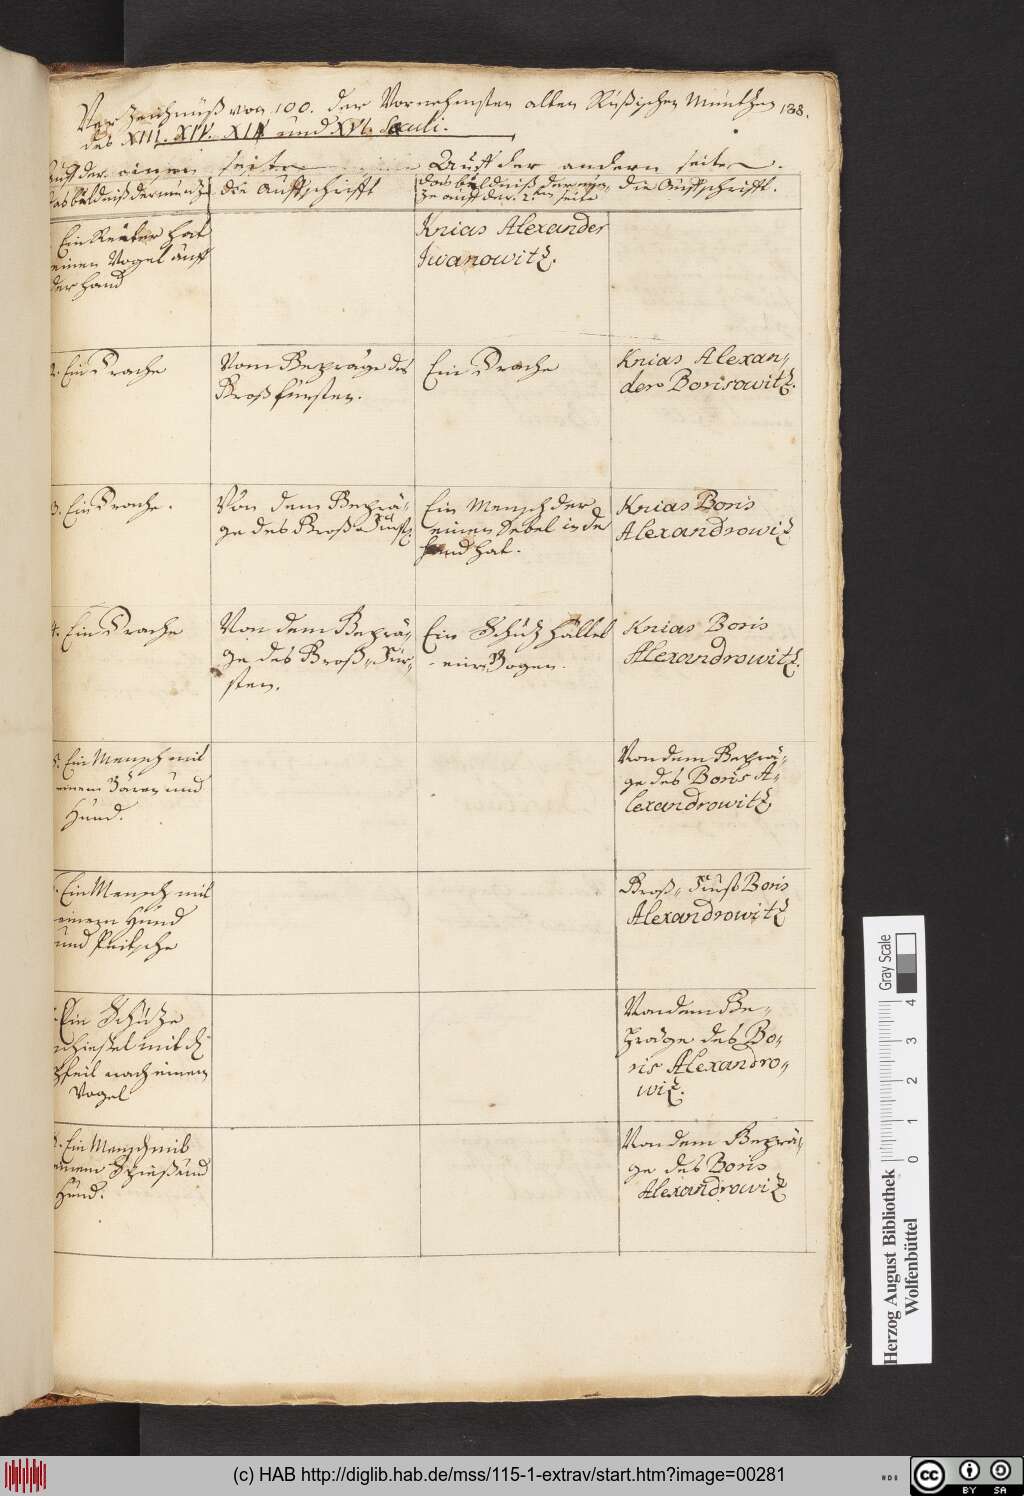 Verzeichnüß von 100. der Vornehmsten alten Rüßischen Müntzen 138.
des XIII. XIV. XV. und XVI. Sæculi.
Auff der einen seite
Auff der andern seite.
das bildniß der müntze
die Auffschrifft
das bildniß der mün
ze auff der 2ten seite
die Auffschrifft.
Ein Reuter hat
einen Vogel auff
der Hand
Knias Alexander
Iwanowitz.
2. Ein Drache
Vom Gepräge des
Großfürsten.
Ein Drache
Knias Alexan-
der Borisowitz.
3. Ein Drache.
Von dem Geprä-
ge des Groß Fürst.
Ein Mensch der
einen Sebel in de
Hand hat.
Knias Boris
Alexandrowitz
4. Ein Drache
Von dem Geprä-
ge des Groß-Für-
sten.
Ein Schütz hältet
einen Bogen.
Knias Boris
Alexandrowitz.
5. Ein Mensch mit
einem Bären und
Hund.
Von dem Geprä-
ge des Boris A-
lexandrowitz
Ein Mensch mit
einem Hund
und Peitsche
Groß-Fürst Boris
Alexandrowitz
Ein Schütze
schießet mit d
Pfeil nach einem
Vogel
Von dem Ge-
präge des Bo-
ris Alexandro-
witz.
8. Ein Mensch mit
einem Spieß und
Hund.
Von dem Geprä-
ge des Boris
Alexandrowitz
Gray Scale
0 1 2 3 4
Herzog August Bibliothek
Wolfenbüttel
(c) HAB http://diglib.hab.de/mss/115-1-extrav/start.htm?image=00281
HAB
cc BY SA